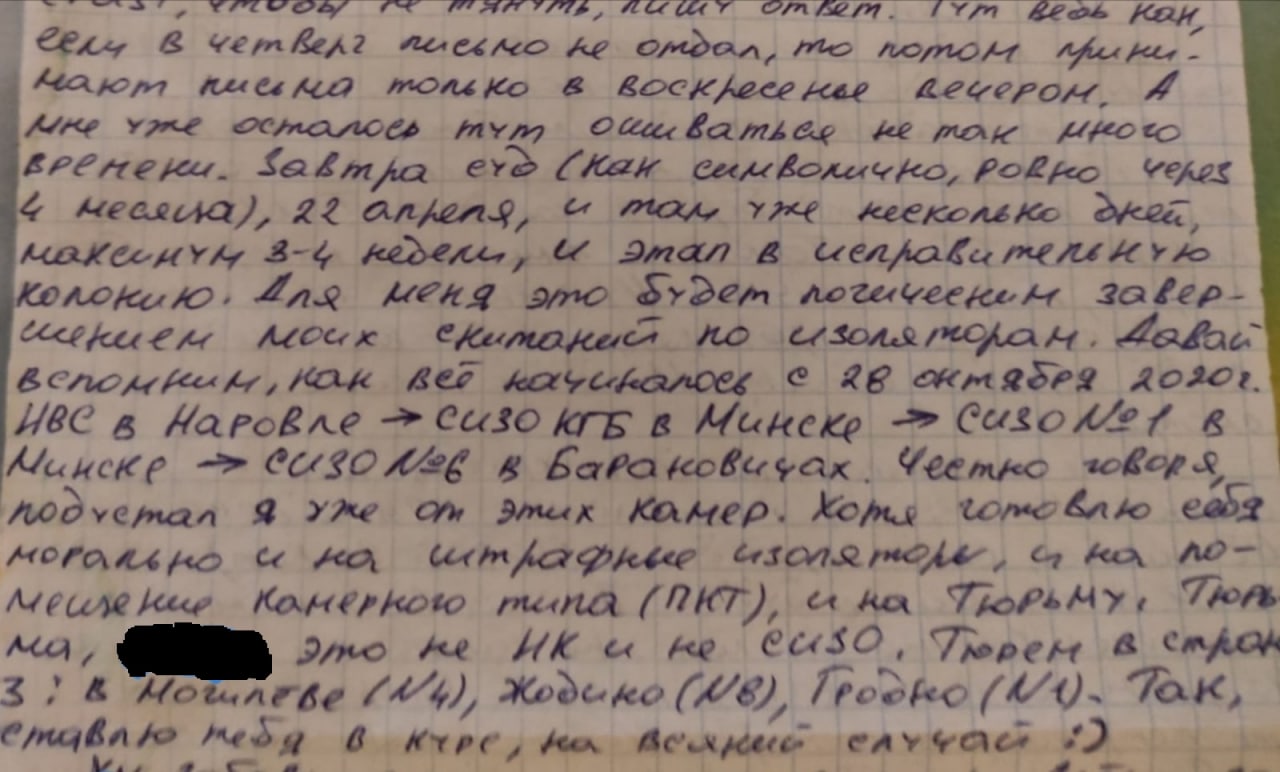 чтобы не тянуть, пишу ответ. Тут ведь как,
если в четверг письмо не отдал, то потом прини-
мают письма только в воскресенье вечером. А
мне уже осталось тут ошиваться не так много
времени. Завтра суд (как символично, ровно через
4 месяца), 22 апреля, и там уже несколько дней,
максимум 3-4 недели, и этап в исправительную
колонию. Для меня это будет логическим завер-
шением моих скитаний по изоляторам. Давай
вспомним, как всё начиналось с 28 октября 2020г.
ИВС в Наровле → СИЗО КГБ в Минске → СИЗО №1 в
Минске → СИЗО №6 в Барановичах. Честно говоря,
подустал я уже от этих камер. Хотя готовлю себя
морально и на штрафные изоляторы, и на по-
мещение камерного типа (ПКТ), и на Тюрьму. Тюрь
ма, это не ИК и не СИЗО. Тюрем в стран
3: в Могилёве (№4), Жодино (№8), Гродно (№1). Так,
ставлю тебя в курс, на всякий случай :)